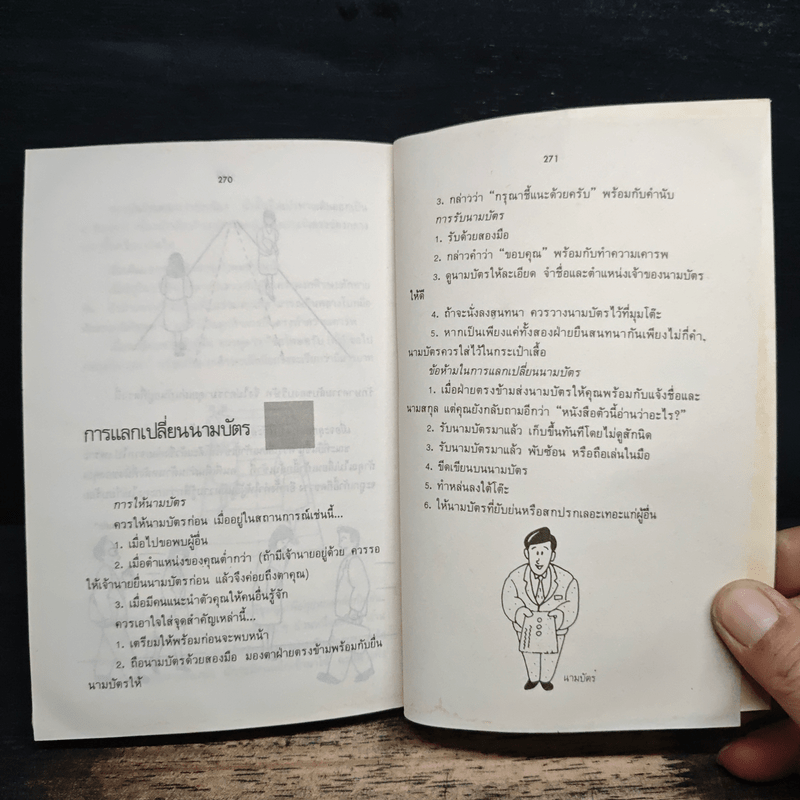 270
การแลกเปลี่ยนนามบัตร
การให้นามบัตร
ควรให้นามบัตรก่อน เมื่ออยู่ในสถานการณ์เช่นนี้...
1. เมื่อไปขอพบผู้อื่น
2. เมื่อตำแหน่งของคุณต่ำกว่า (ถ้ามีเจ้านายอยู่ด้วย ควรรอ
ให้เจ้านายยื่นนามบัตรก่อน แล้วจึงค่อยถึงตาคุณ)
3. เมื่อมีคนแนะนำตัวคุณให้คนอื่นรู้จัก
ควรเอาใจใส่จุดสำคัญเหล่านี้...
1. เตรียมให้พร้อมก่อนจะพบหน้า
2. ถือนามบัตรด้วยสองมือ มองตาฝ่ายตรงข้ามพร้อมกับยื่น
นามบัตรให้
271
3. กล่าวว่า "กรุณาชี้แนะด้วยครับ" พร้อมกับคำนับ
การรับนามบัตร
1. รับด้วยสองมือ
2. กล่าวคำว่า "ขอบคุณ" พร้อมกับทำความเคารพ
3. ดูนามบัตรให้ละเอียด จำชื่อและตำแหน่งเจ้าของนามบัตร
ให้ดี
4. ถ้าจะนั่งลงสนทนา ควรวางนามบัตรไว้ที่มุมโต๊ะ
5. หากเป็นเพียงแค่ทั้งสองฝ่ายยืนสนทนากันเพียงไม่กี่คำ,
นามบัตรควรใส่ไว้ในกระเป๋าเสื้อ
ข้อห้ามในการแลกเปลี่ยนนามบัตร
1. เมื่อฝ่ายตรงข้ามส่งนามบัตรให้คุณพร้อมกับแจ้งชื่อและ
นามสกุล แต่คุณยังกลับถามอีกว่า "หนังสือตัวนี้อ่านว่าอะไร?"
2. รับนามบัตรมาแล้ว เก็บขึ้นทันทีโดยไม่ดูสักนิด
3. รับนามบัตรมาแล้ว พับซ้อน หรือถือเล่นในมือ
4. ขีดเขียนบนนามบัตร
5. ทำหล่นลงใต้โต๊ะ
6. ให้นามบัตรที่ยับย่นหรือสกปรกเลอะเทอะแก่ผู้อื่น
นามบัตร